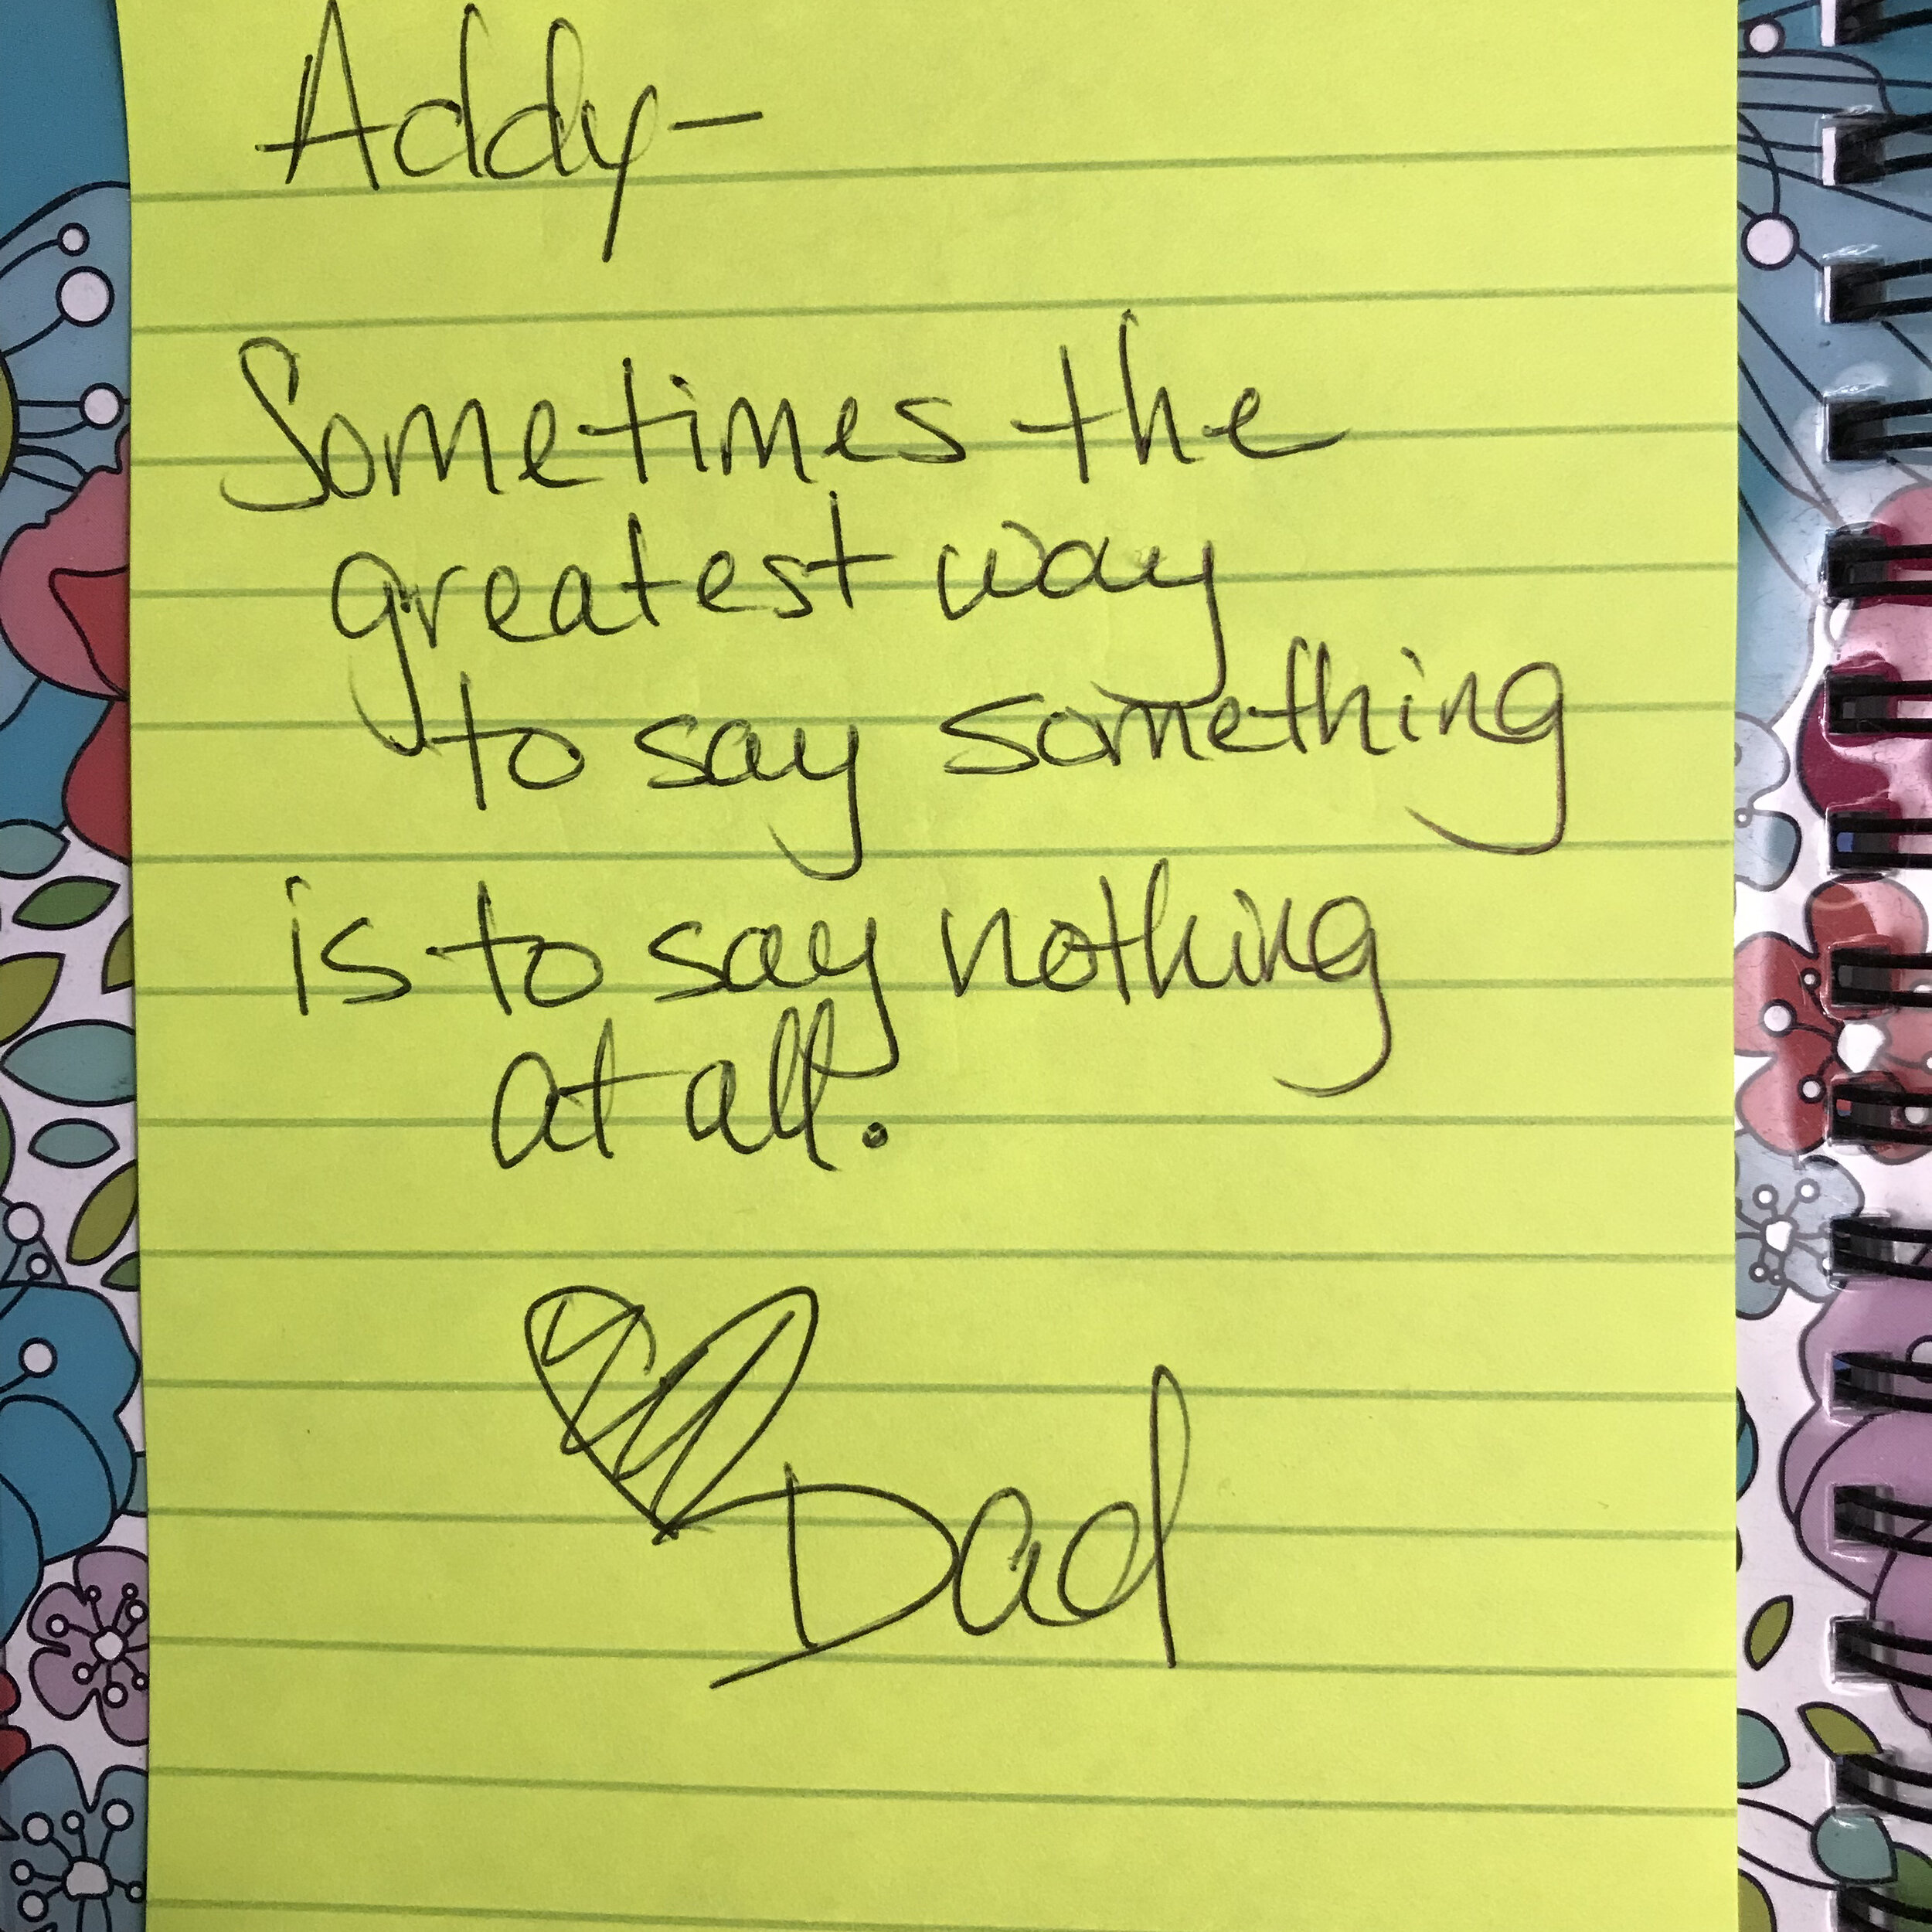 Addy-
Sometimes the
greatest way
to say something
is to say nothing
at all.
Dad